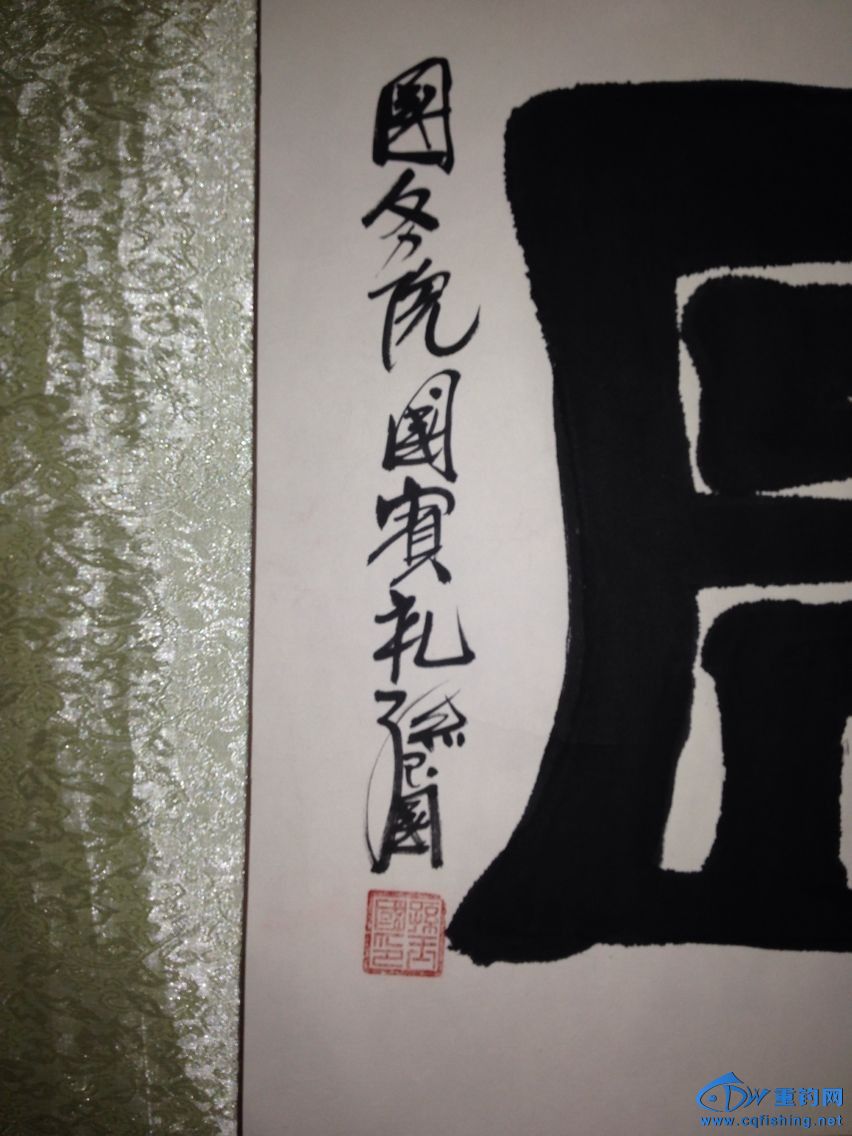 國务院國賓礼孫玉國
孫玉
國印
DW重钓网
www.cqfishing.net